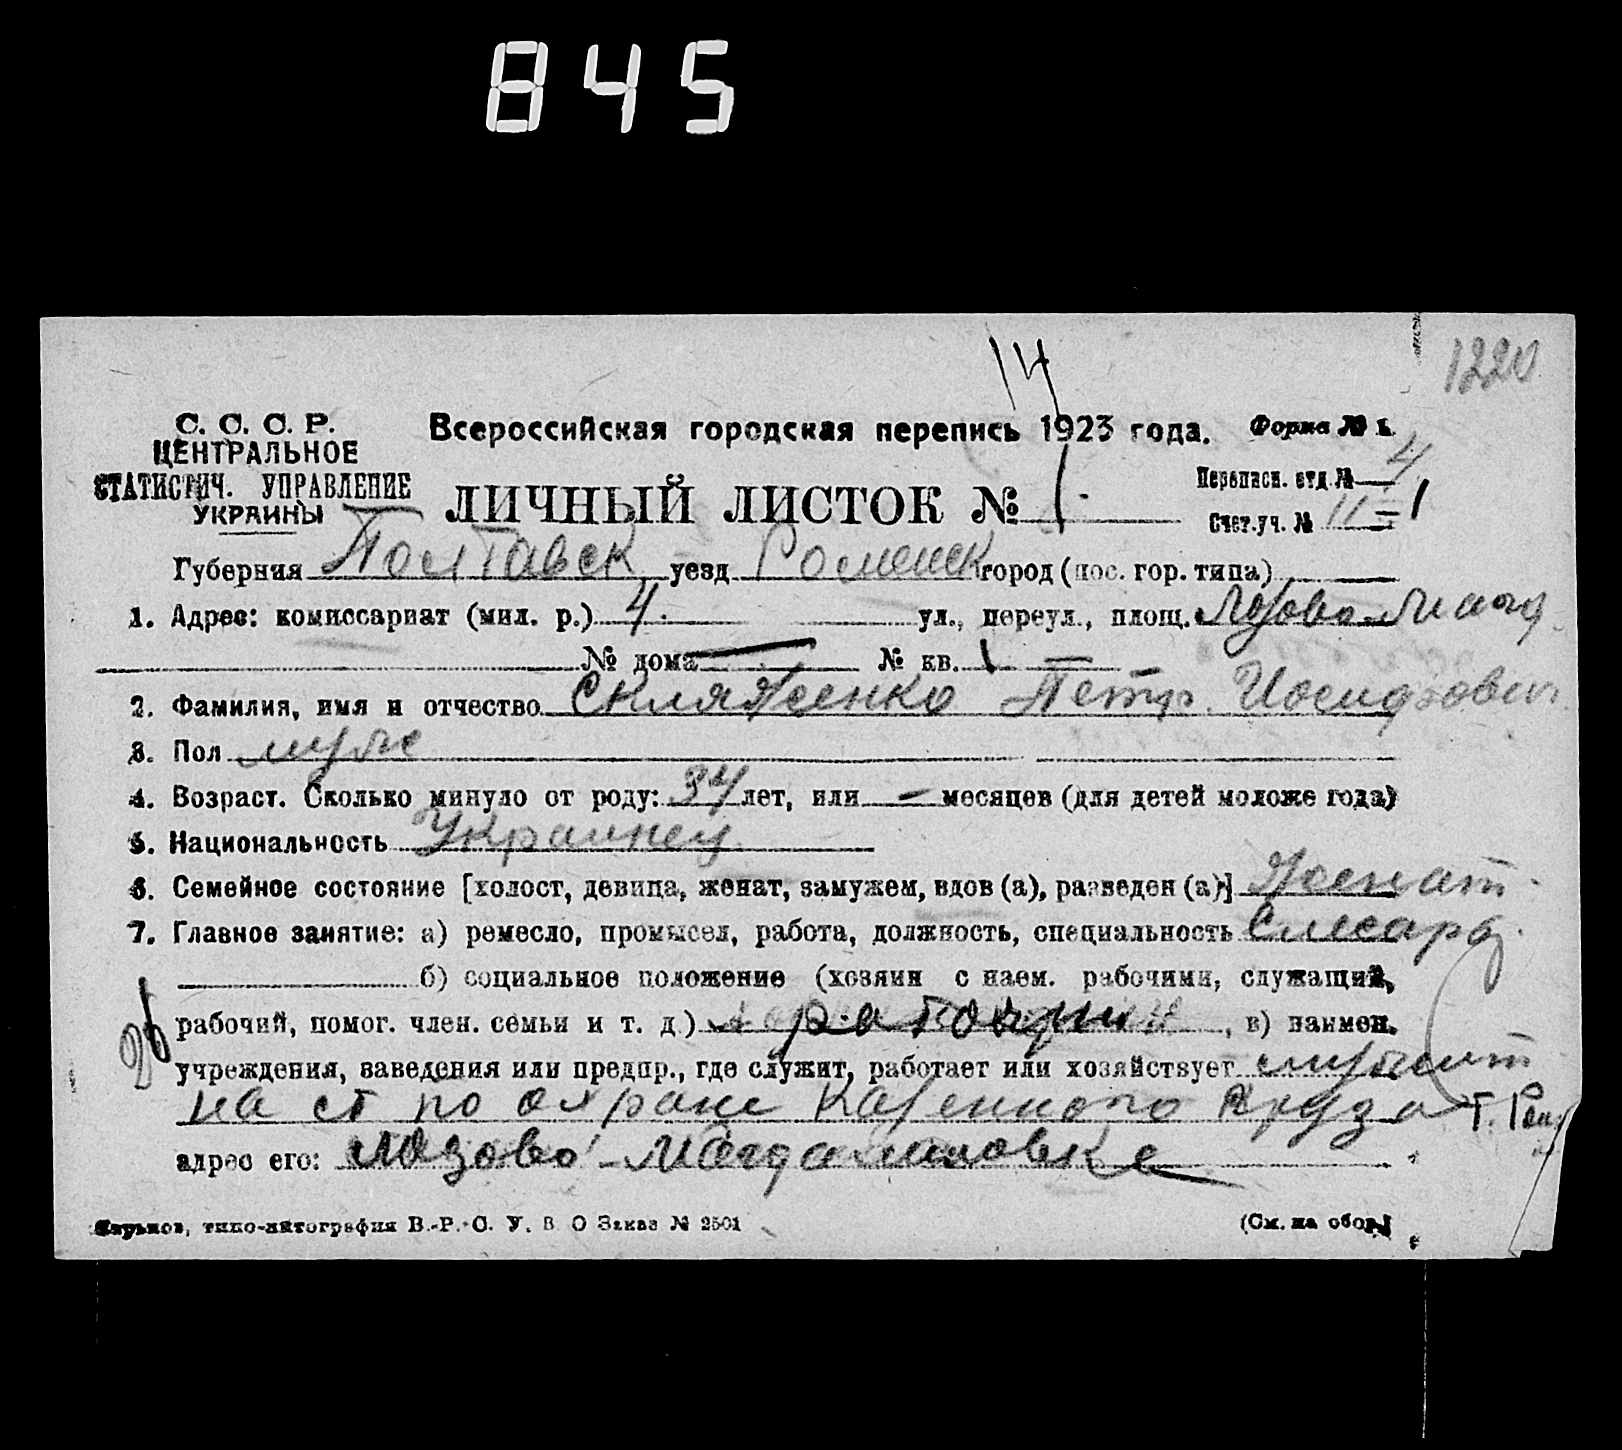 845
14
1220
С. С. С. Р.
ЦЕНТРАЛЬНОЕ
СТАТИСТИЧ. УПРАВЛЕНИЕ
УКРАИНЫ
Всероссийская городская перепись 1923 года.
Форма № 1.
Переписн. отд. № 4
ЛИЧНЫЙ ЛИСТОК № 1.
Счет.уч. № II = 1
Губерния Полтавск уезд Роменск город (пос. гор. типа)
1. Адрес: комиссариат (мил. р.) 4. ул., переул., площ. Лозово-
№ дома — № кв. 1 —
2. Фамилия, имя и отчество Скляженко Петр Иосифович
3. Пол муж
4. Возраст. Сколько минуло от роду: 34 лет, или — месяцев (для детей моложе года)
5. Национальность Украинец
6. Семейное состояние [холост, девица, женат, замужем, вдов (а), разведен (а)] Женат.
7. Главное занятие: а) ремесло, промысел, работа, должность, специальность Слесарь.
б) социальное положение (хозяин с наем. рабочими, служащий,
рабочий, помог. член. семьи и т. д.) рабочий, в) наимен.
26
учреждения, заведения или предпр., где служит, работает или хозяйствует служит
на ст по охране Казенного груза
адрес его: Лозово-Магдалиновке
Харьков, типо-литография В.-Р. С. У. В. О Заказ № 2501
(См. на обор.)